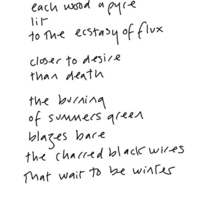 each wood a pyre
lit
to the ecstasy of flux
closer to desire
than death
the burning
of summers green
blazes bare
the charred black wires
that wait to be winter